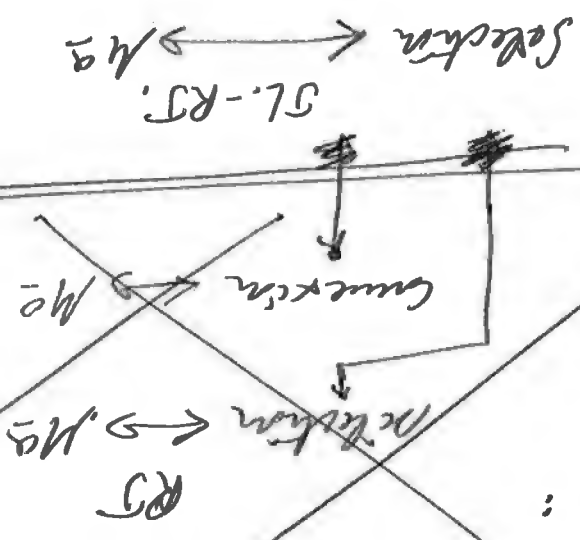 :
RJ
Sélection ↔ Ma.
Connexion ↔ Ma
JL.-RJ.
Selection ↔ Ma